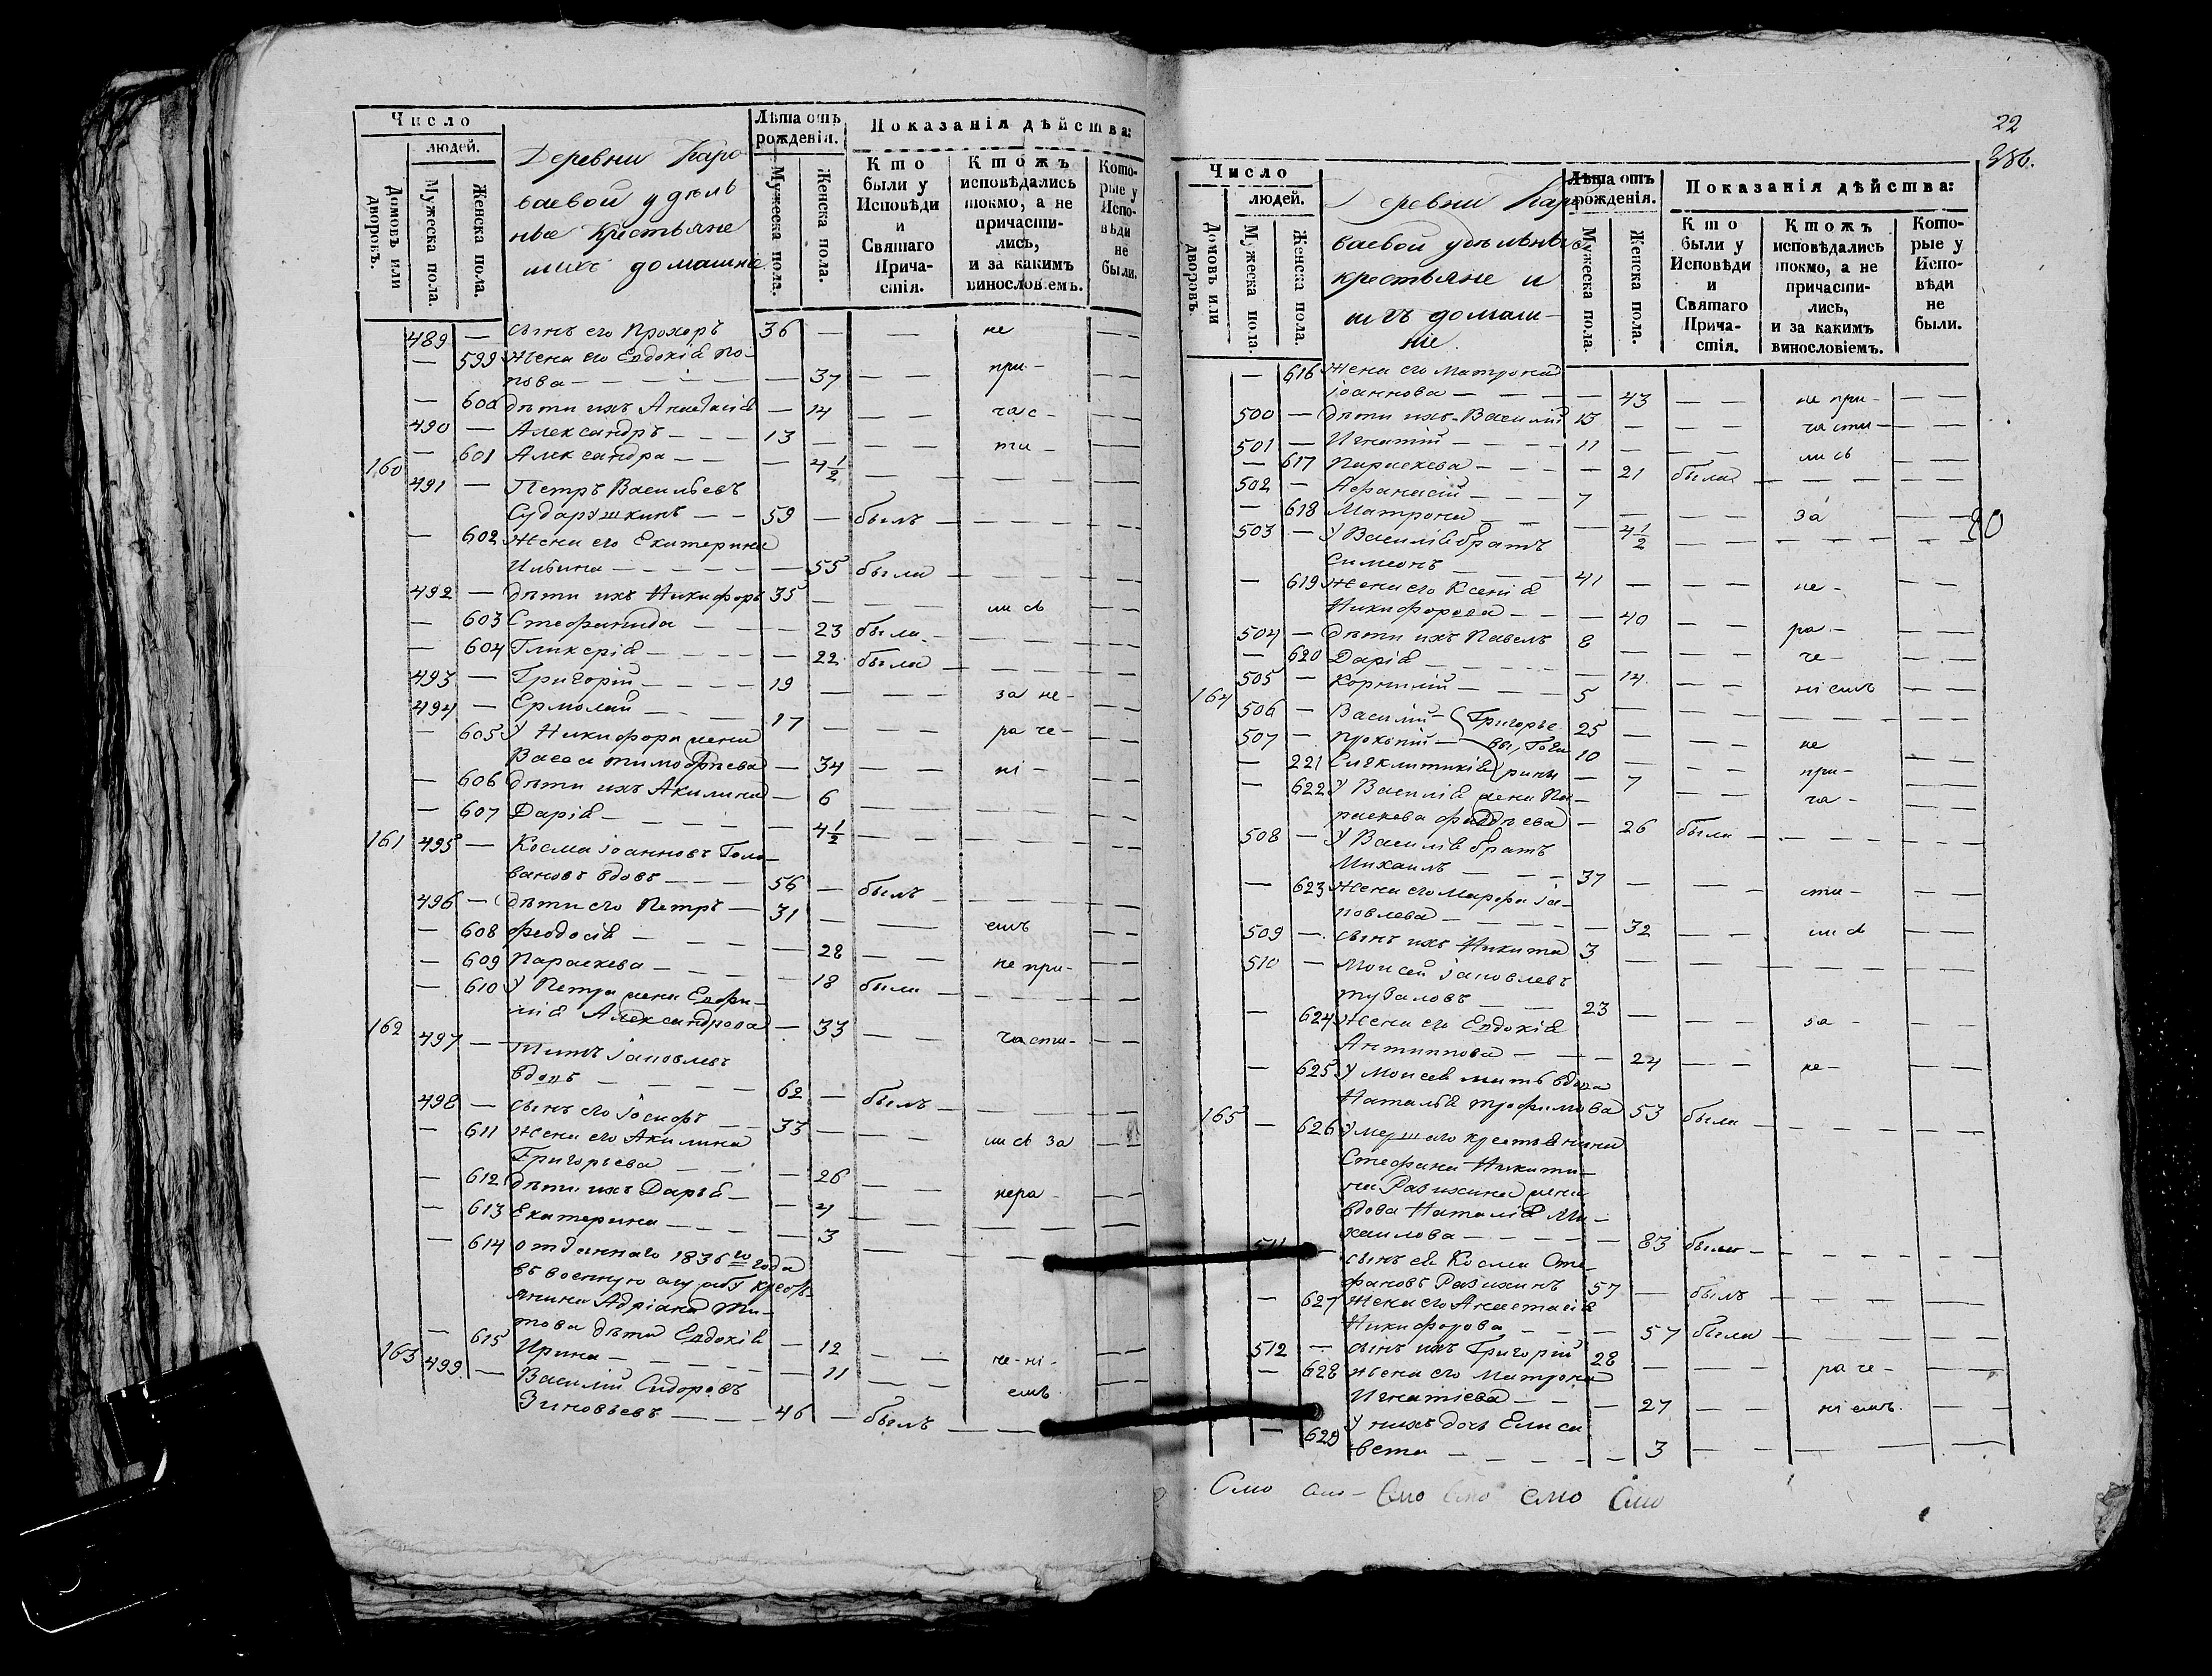 Число
людей.
Домовъ или дворовъ.
Мужеска пола.
Женска пола.
Деревни Каро
ваевой удѣль
ные крестьяне
ихъ домашніе
Лѣта отъ рожденія.
Мужеска пола.
Женска пола.
Показанія дѣйства:
Кто были у Исповѣди и Святаго Причастія.
Ктожъ исповѣдались токмо, а не причасти-лись, и за какимъ винословіемъ.
Кото-рые у Испо-вѣди не были.
489 — сынъ его Прохоръ 36 — — не — —
— 599 Жена его Евдокія По-
пова — — 37 — — при- — —
— 600 дѣти ихъ Анастасія — 14 — — час- — —
490 — Александръ — 13 — — — ти- — —
— 601 Александра — — 4½ — — —
160 491 — Петръ Васильевъ
Сударушкинъ — — 59 — былъ — — —
— 602 Жена его Екатерина
Ильина — — 55 была — — —
492 — дѣти ихъ Никифоръ 35 — — — лись — —
— 603 Стефанида — — 23 была — — —
— 604 Гликерія — — 22 была — — —
493 — Григорій — 19 — — — за не- — —
494 — Ермолай — 17 — — — раче- — —
— 605 У Никифора жена
Васса Тимофѣева — 34 — — ні- — —
— 606 дѣти ихъ Акилина — 6 — — —
— 607 Дарія — — 4½ — — —
161 495 — Косма Іоанновъ Голо-
вановъ вдовъ — 56 — былъ — — —
496 — дѣти его Петръ — 31 — — емъ — —
— 608 Феодосія — — 28 — — не при- — —
— 609 Параскева — — 18 была — — —
— 610 У Петра жена Евфи-
мія Александрова — 33 — — части- — —
162 497 — Титъ Іаковлевъ
вдовъ — 62 — былъ — — —
498 — сынъ его Іосифъ — 33 — — — лись за — —
— 611 Жена его Акилина
Григорьева — — 26 — — нера- — —
— 612 дѣти ихъ Дарья — — 4 — — —
— 613 Екатерина — — 3 — — —
— 614 отданнаго 1836го года
въ военную службу кресть-
янина Адріана Ти-
това дѣти Евдокія — 12 — — че-ні- — —
— 615 Ирина — — 11 — — емъ — —
163 499 — Василій Сидоровъ
Зиновьевъ — 46 — былъ — —
22
Число
людей.
Домовъ или дворовъ.
Мужеска пола.
Женска пола.
Деревни Каро
ваевой удѣльные
крестьяне и
ихъ домаш-
ніе
Лѣта отъ рожденія.
Мужеска пола.
Женска пола.
Показанія дѣйства:
Кто были у Исповѣди и Святаго Прича-стія.
Ктожъ исповѣдались токмо, а не причасти-лись, и за какимъ винословіемъ.
Кото-рые у Испо-вѣди не были.
— 616 Жена его Матрона
Іоаннова — — 43 — — не при- — —
500 — дѣти ихъ Василій 13 — — — части- — —
501 — Игнатій — 11 — — — лись — —
— 617 Параскева — — 21 была — — —
502 — Афанасій — 7 — — — за — —
— 618 Матрона — — 4½ — — —
503 — У Василія братъ
Симеонъ — 41 — — — не- — —
— 619 Жена его Ксенія
Никифорова — — 40 — — ра- — —
504 — дѣти ихъ Павелъ 8 — — — че- — —
— 620 Дарія — — 14 — — ніемъ — —
505 — Корнилій — 5 — — —
164 506 — Василій — Григорье 25 — — — не — —
507 — Прокопій — 10 — — — при- — —
— 221 Сигклитикія — 7 — — ча- — —
— 622 У Василія жена Па-
раскева Фаддѣева — 26 была — — —
508 — У Василія братъ
Михаилъ — 37 — — — сти- — —
— 623 Жена его Марфа Іа-
ковлева — — 32 — — лись — —
509 — сынъ ихъ Никита 3 — — —
510 — Моисей Іаковлевъ
Тузаловъ — 23 — — — за- — —
— 624 Жена его Евдокія
Антипова — — 24 — — не- — —
— 625 У Моисея мать вдова
Наталья Трофимова 53 была — — —
165 — 626 Умершаго крестьянина
Стефана Никити-
на Разихина жена
вдова Наталія Ми-
хаилова — — 83 была — — —
511 — сынъ ея Косма Сте-
фановъ Разихинъ 57 — былъ — — —
— 627 Жена его Анастасія
Никифорова — — 57 была — — —
512 — сынъ ихъ Григорій 28 — — — раче- — —
— 628 жена его Матрона
Игнатіева — — 27 — — ніемъ — —
— 629 У нихъ дочь Елиса
вета — — 3 — — —